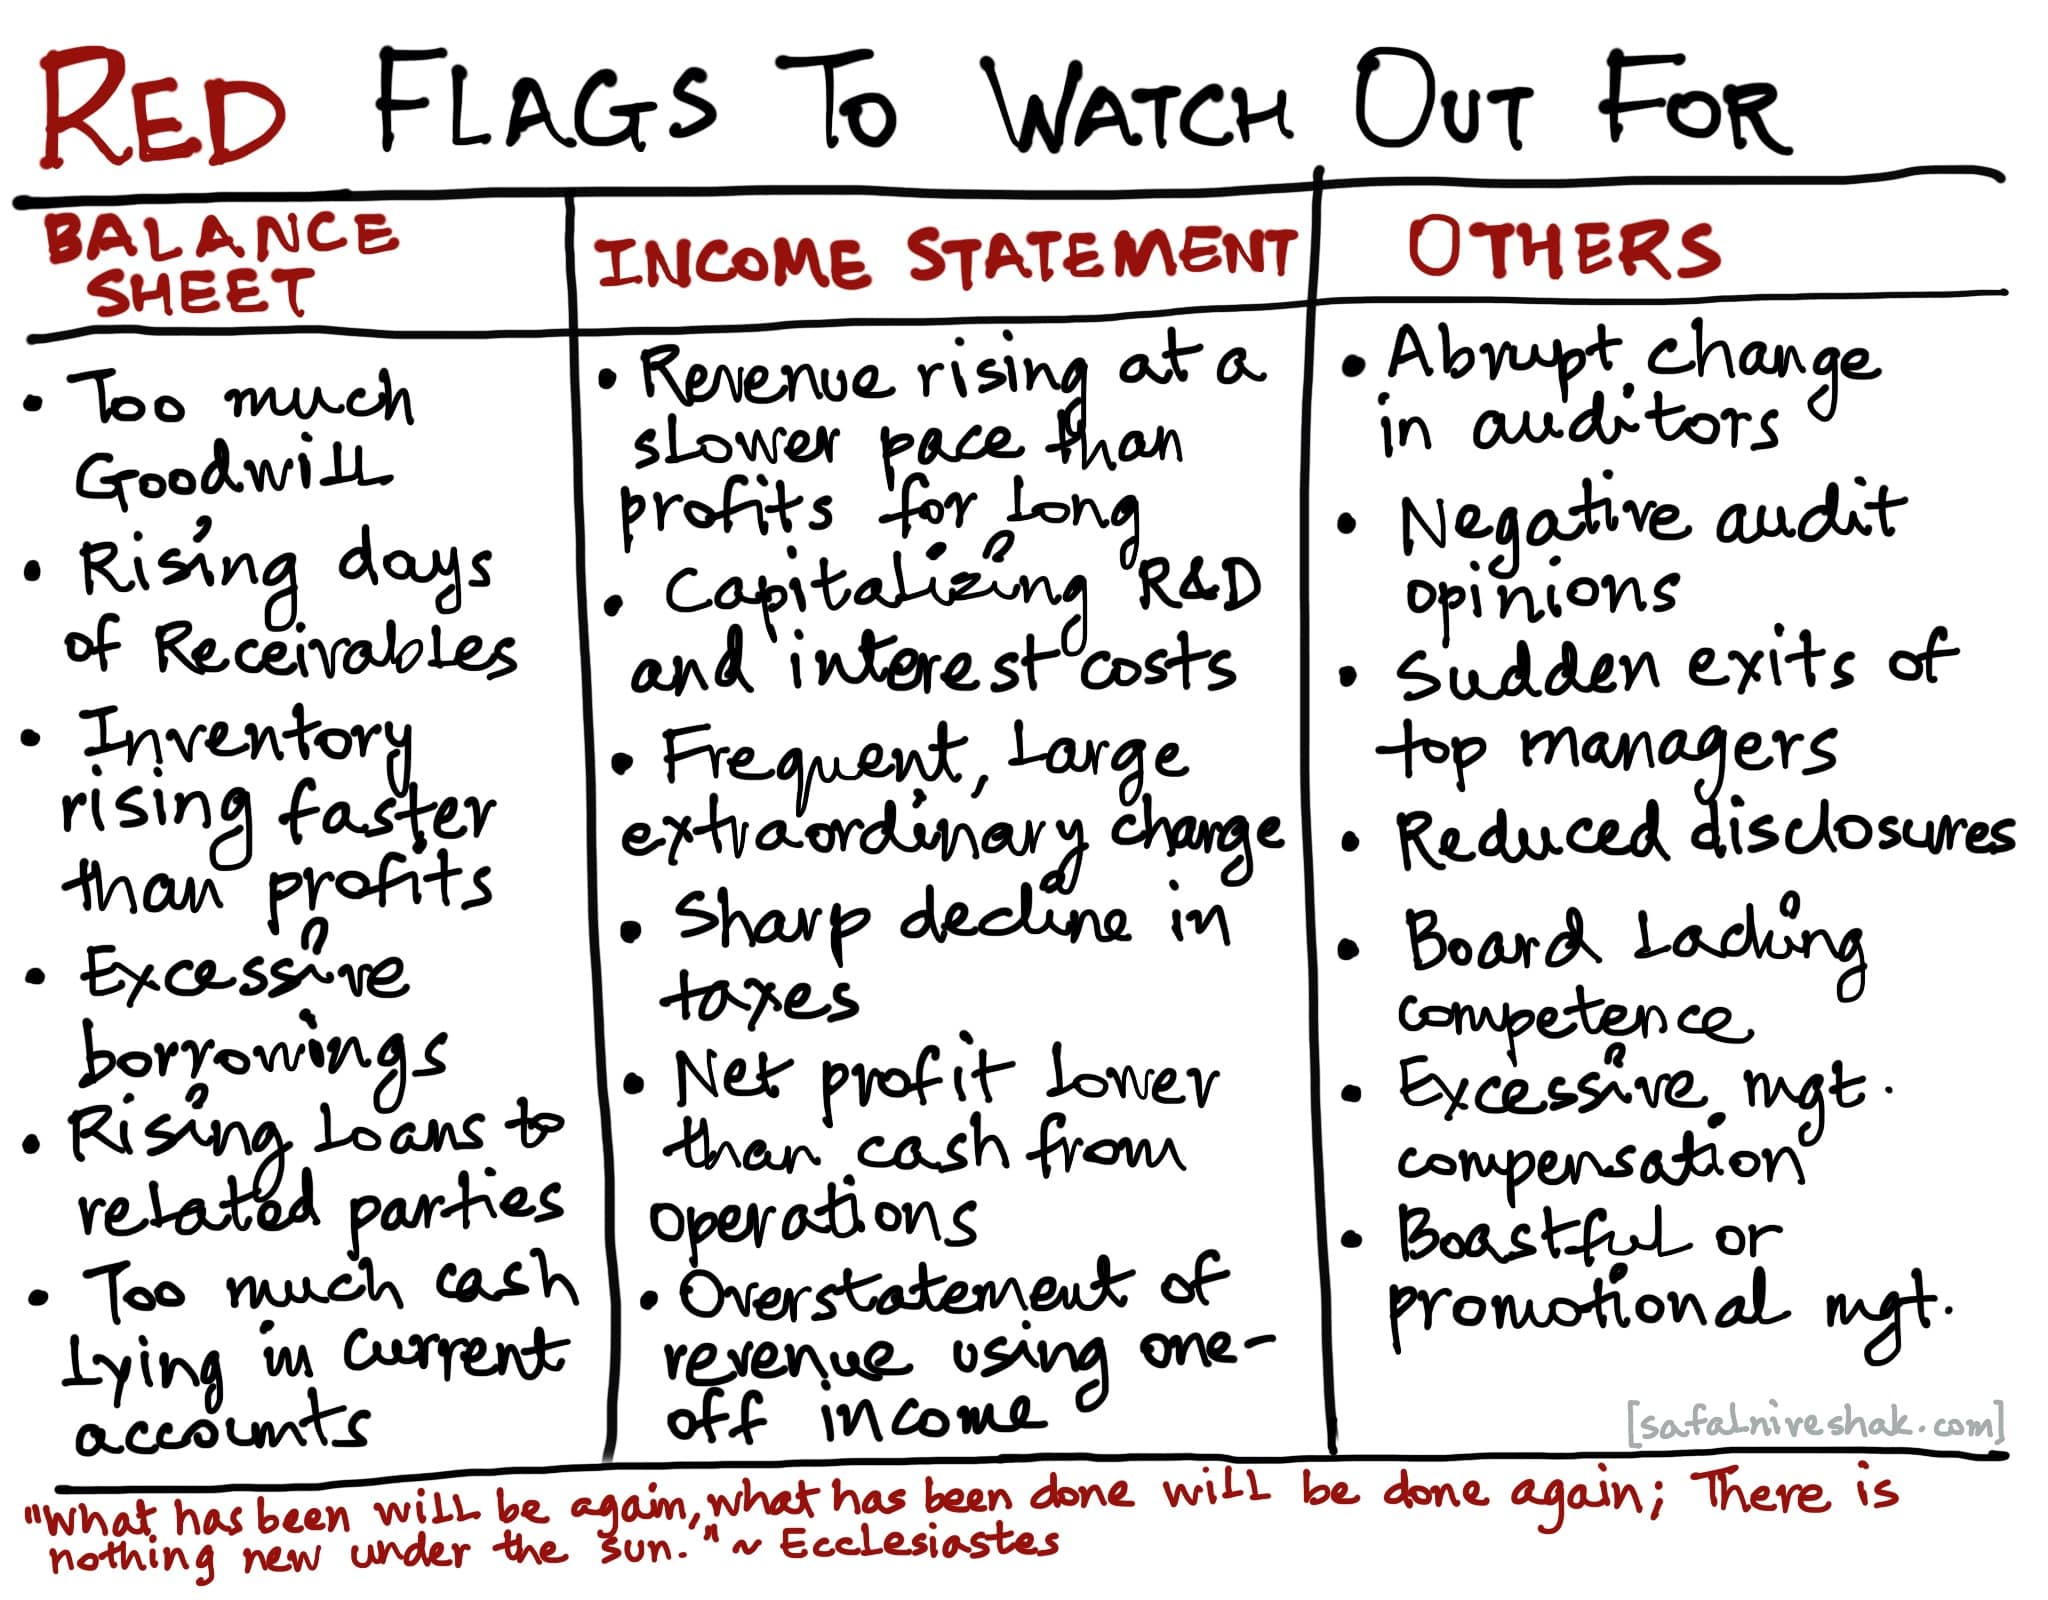 RED FLAGS TO WATCH OUT FOR
BALANCE
SHEET
• Too much
Goodwill
• Rising days
of Receivables
• Inventory
rising faster
than profits
• Excessive
borrowings
• Rising Loans to
related parties
• Too much cash
lying in current
accounts
INCOME STATEMENT
• Revenue rising at a
slower pace than
profits for long
• Capitalizing R&D
and interest costs
• Frequent, large
extraordinary charge
• Sharp decline in
taxes
• Net profit lower
than cash from
operations
• Overstatement of
revenue using one-
off income
OTHERS
• Abrupt change
in auditors
• Negative audit
opinions
• Sudden exits of
top managers
• Reduced disclosures
• Board Lacking
competence
• Excessive mgt.
compensation
• Boastful or
promotional mgt.
[safalniveshak.com]
"What has been will be again, what has been done will be done again; There is
nothing new under the sun." ~ Ecclesiastes